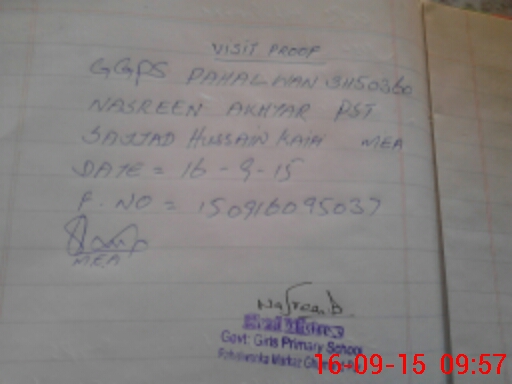 VISIT PROOF
GGPS PAHALWAN
NASREEN AKHTAR PST
SAJJAD HUSSAIN KAIA MEA
DATE = 16-9-15
F.NO = 150916095037
MEA
Nasreen.b
Head Mistress
Govt: Girls Primary School
16-09-15 09:57